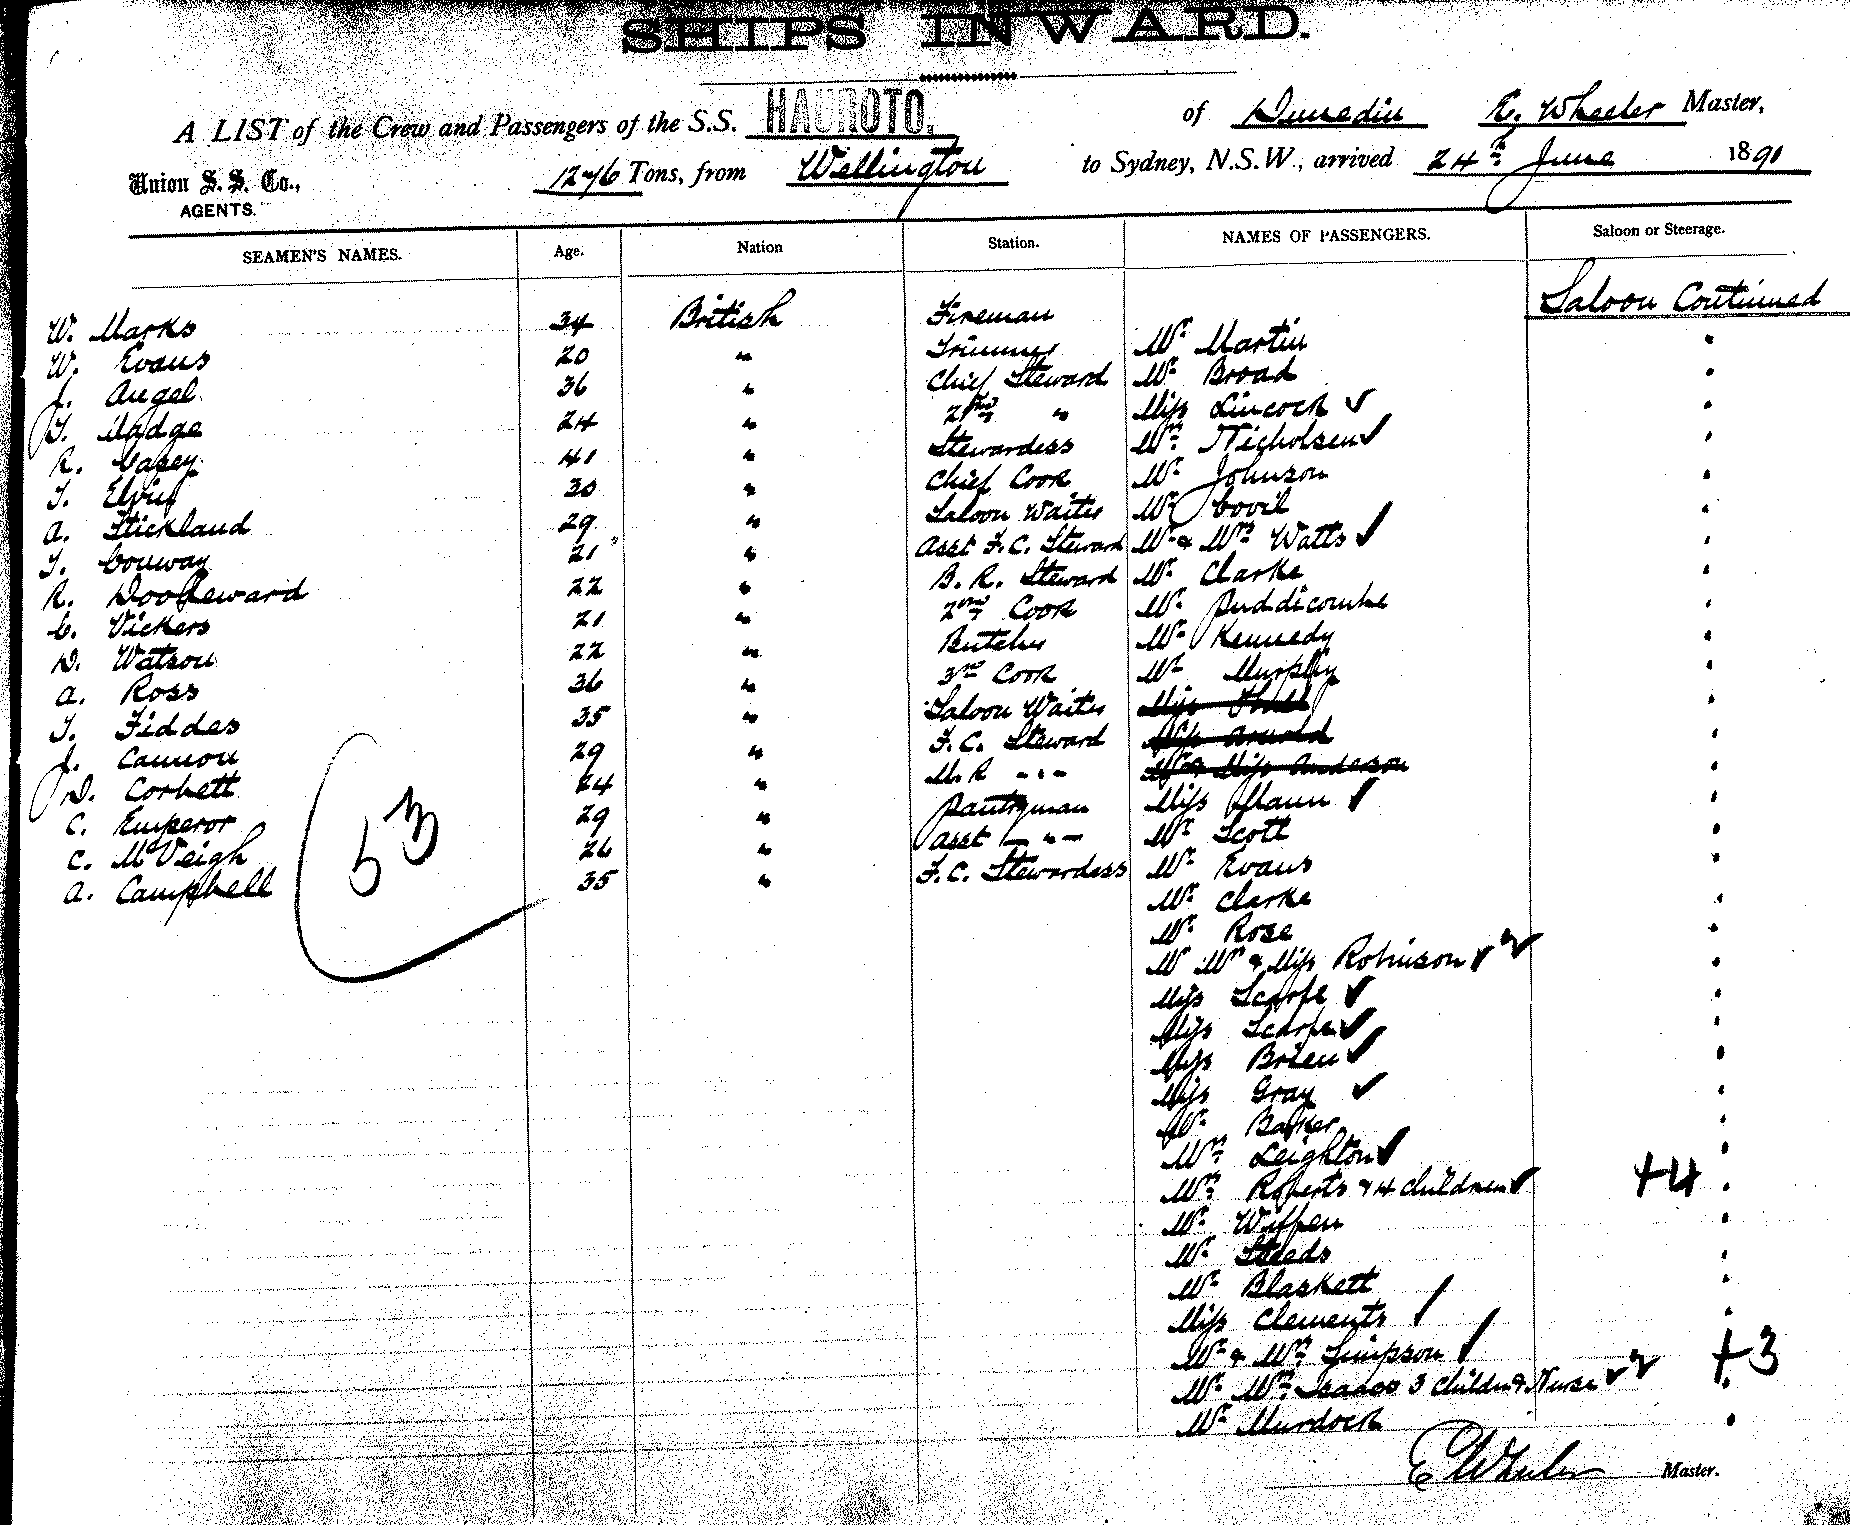 SHIPS INWARD.
A LIST of the Crew and Passengers of the S.S. HAUROTO, of Dunedin E. Wheeler Master,
Union S. S. Co., AGENTS. 1276 Tons, from Wellington to Sydney, N.S.W., arrived 24th June 1891
SEAMEN'S NAMES. Age. Nation Station. NAMES OF PASSENGERS. Saloon or Steerage.
Saloon Continued
W. Marks 34 British Fireman
W. Evans 20 " Trimmer Mr Martin "
J. Angel 36 " Chief Steward Mr Broad "
T. Madge 24 " 2nd " Miss Lincock "
R. Casey 41 " Stewardess Mrs Nicholsen "
T. 30 " Chief Cook Mr Johnson "
A. Stickland 29 " Saloon Waiter Mr Covil "
T. Conway 21 " Asst F.C. Steward Mr & Mrs Watts "
R. 22 " B. R. Steward Mr Clarke "
C. Vickers 21 " 2nd Cook Mr Puddicombe "
D. Watson 22 " Butcher Mr Kennedy "
A. Ross 36 " 3rd Cook Mr Murphy "
T. Fiddes 35 " Saloon Waiter Miss "
J. Cannon 29 " F.C. Steward Miss Arnold "
D. Corbett 24 " M.R " Mr & Miss Anderson "
C. Emperor 29 " Pantryman Miss Mann "
C. McVeigh 26 " Asst " Mr Scott "
A. Campbell 35 " F.C. Stewardess Mr Evans "
53
Mr Clarke "
Mr Rose "
Mr Mrs & Miss Robinson 2 "
Miss Scarfe "
Miss Scarfe "
Miss Brien "
Miss Gray "
Mr Baker "
Mrs Leighton "
Mrs Roberts & 4 children +4 "
Mr Wiffen "
Mr Steeds "
Mr Blaskett "
Miss Clements "
Mr & Mrs Simpson "
Mr Mrs Isaacs 3 Childn & Nurse 2 +3 "
Mr Murdock "
E Wheeler Master.